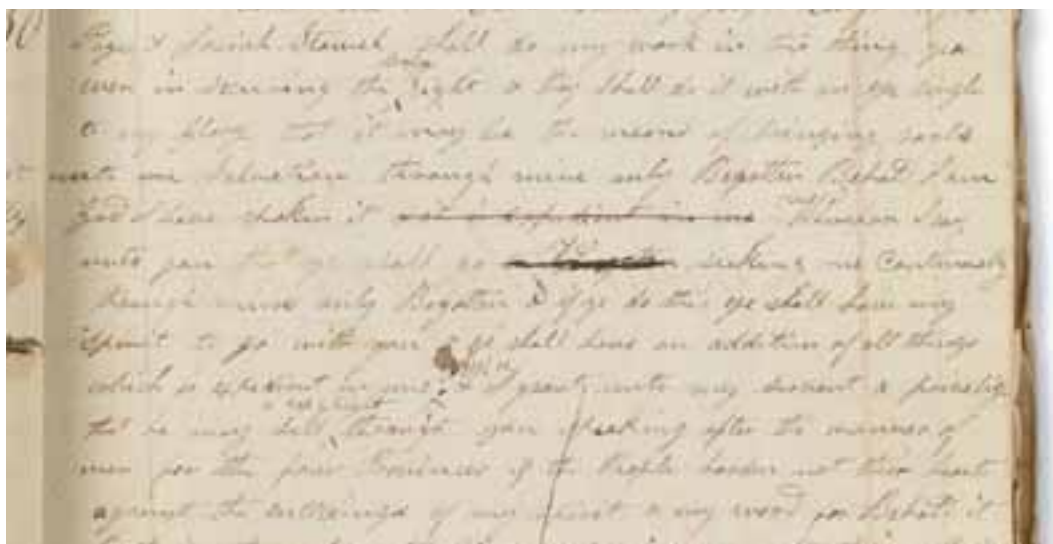 Page & Josiah Stowel shall do my work in this thing yea
even in securing the right & they shall do it with an eye single
to my glory that it may be the means of bringing souls
unto me Salvation through mine only Begotten Behold I am
God I have spoken it Wherefore I say
unto you that ye shall go seeking me continually
through mine only Begotten & if ye do this ye shall have my
spirit to go with you & ye shall have an addition of all things
which is expedient in me & I grant unto my servent a privelige
that he may sell through you speaking after the manner of
men for the four Provinces if the People harden not their hearts
against the enticeings of my spirit & my word for Behold it